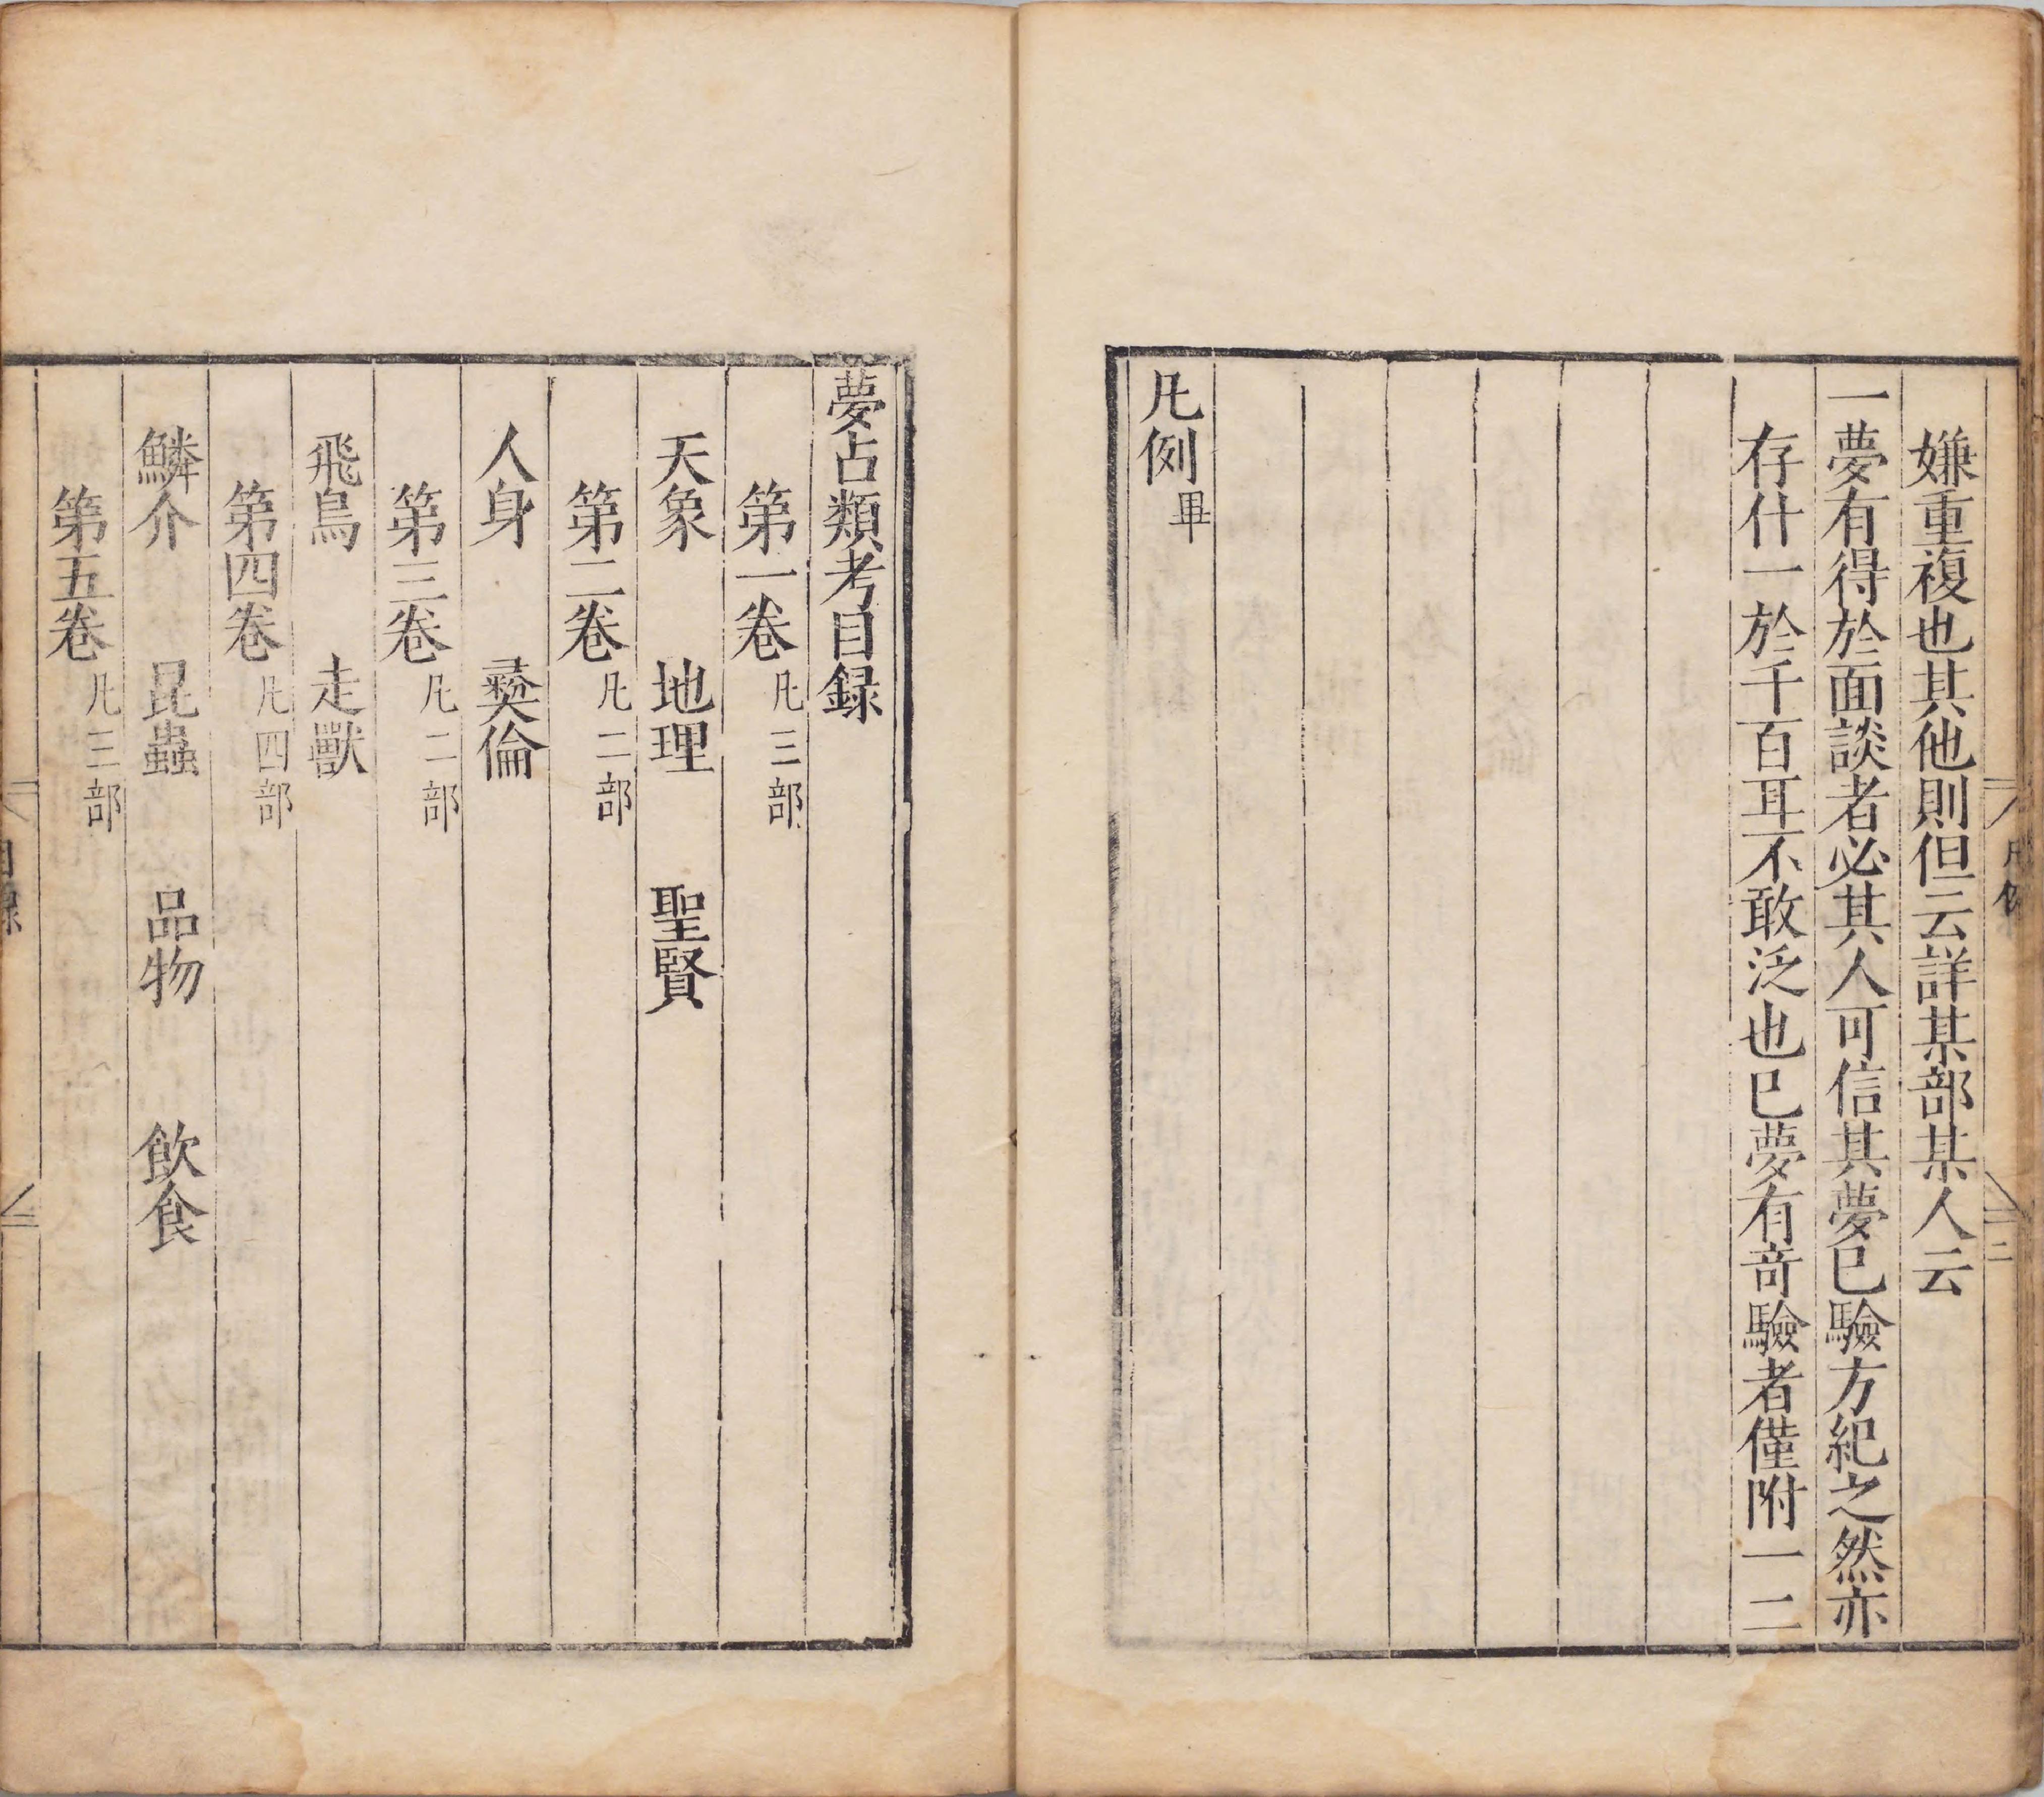 嫌重複也其他則但云詳某部某人云
一夢有得於面談者必其人可信其夢巳驗方紀之然亦
存什一於千百耳不敢泛也巳夢有竒驗者僅附一二
凡例畢
夢占類考目録
第一卷凡三部
天象 地理 聖賢
第二卷凡二部
人身 彜倫
第三卷凡二部
飛鳥 走獸
第四卷凡四部
鱗介 昆蟲 品物 飲食
第五卷凡三部